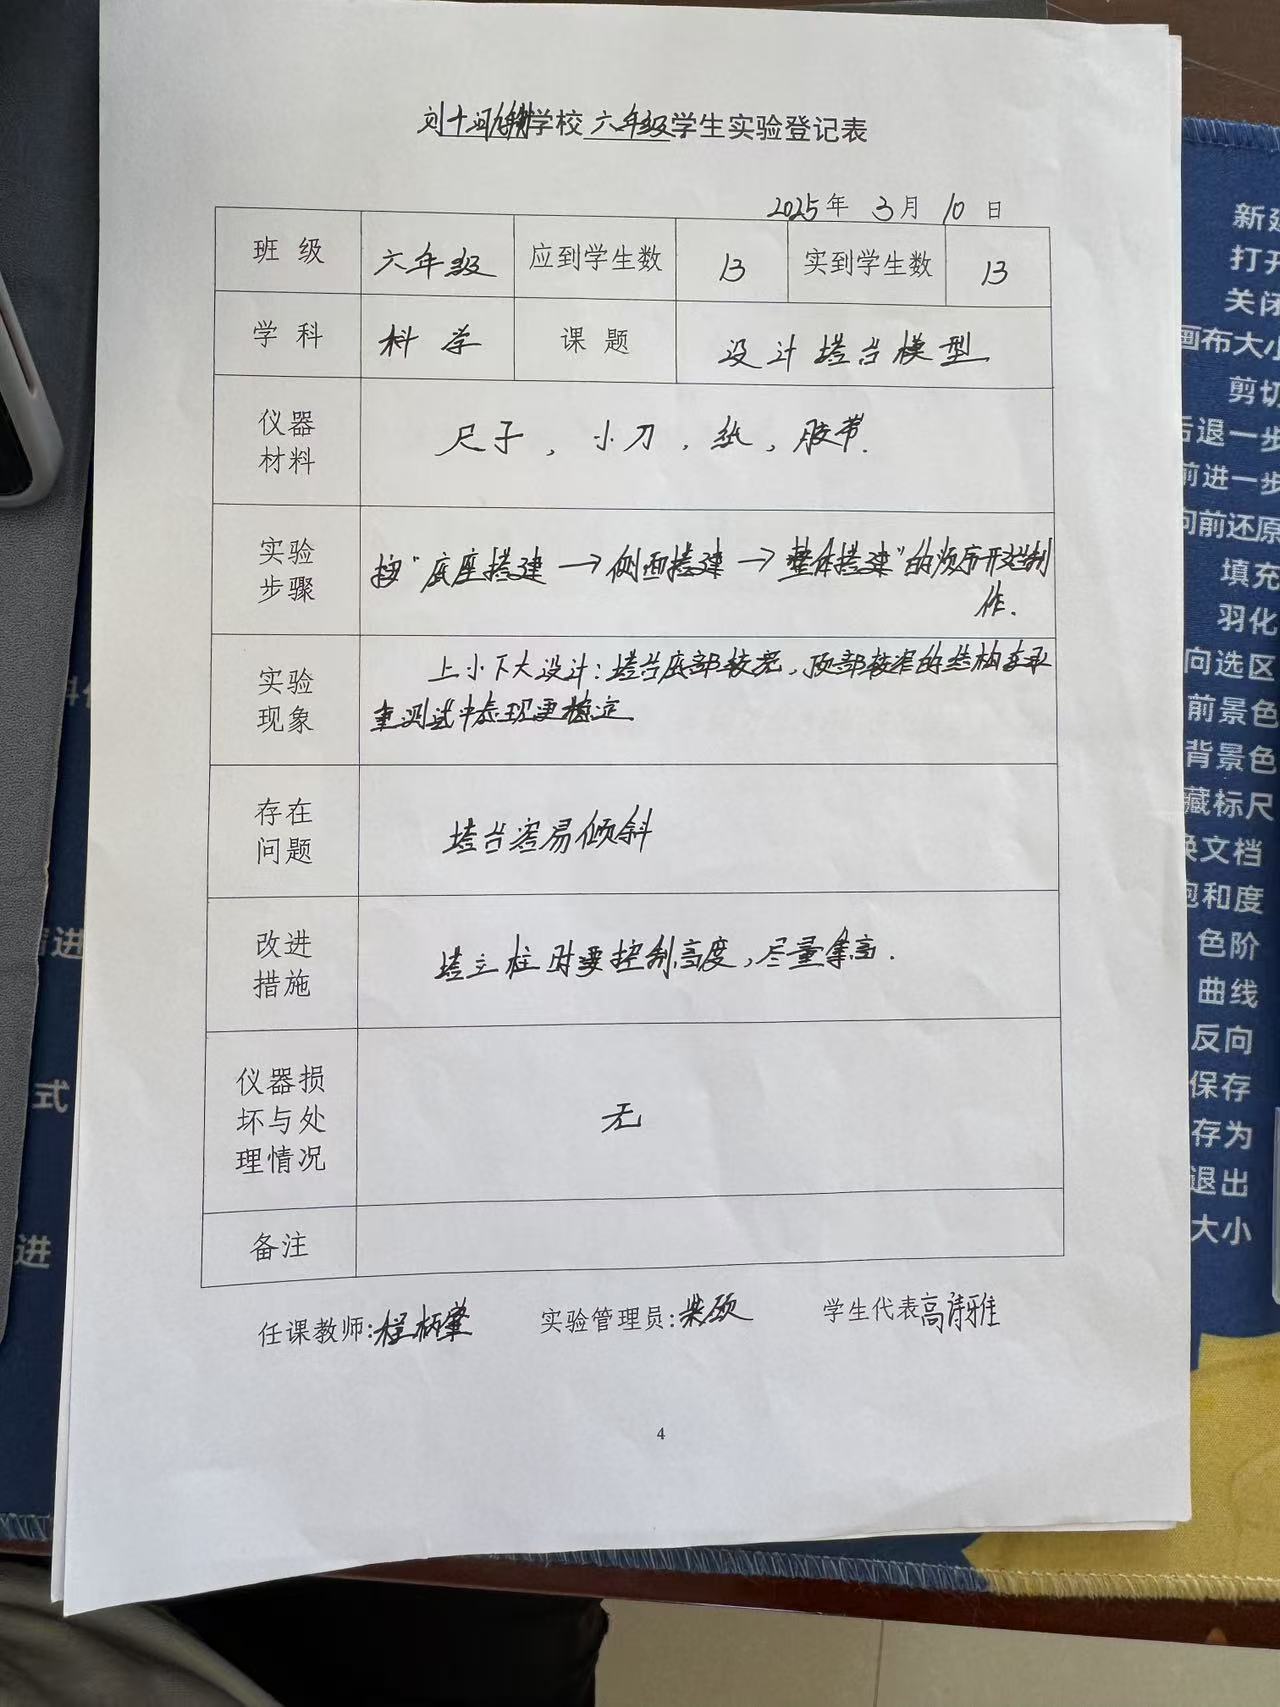 学校 六年级学生实验登记表
2025年 3月 10日
班级 六年级 应到学生数 13 实到学生数 13
学科 科学 课题 设计塔台模型
仪器
材料
尺子，小刀，纸，胶带.
实验
步骤
按“底座搭建→侧面搭建→整体搭建”的顺序开始制
作.
实验
现象
上小下大设计：塔台底部较宽，顶部较窄的结构在承
重测试中表现更稳定
存在
问题
塔台容易倾斜
改进
措施
塔立柱时要控制高度，尽量等高.
仪器损
坏与处
理情况
无
备注
任课教师: 实验管理员: 学生代表高诗雅
4
新建
打开
关闭
画布大小
剪切
后退一步
前进一步
向前还原
填充
羽化
向选区
前景色
背景色
藏标尺
换文档
饱和度
色阶
曲线
反向
保存
存为
退出
大小
进
式
进